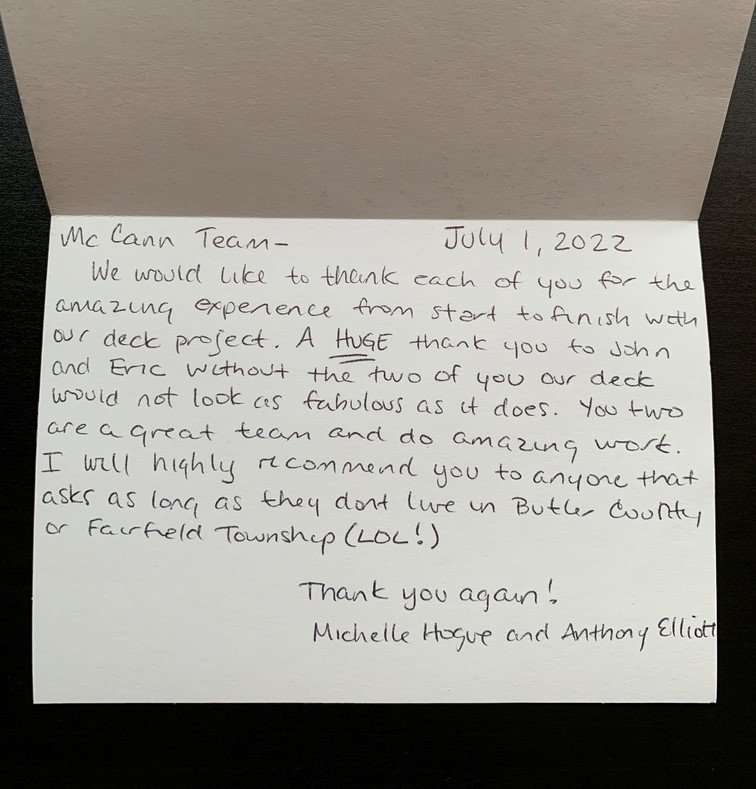 McCann Team- July 1, 2022
We would like to thank each of you for the
amazing experience from start to finish with
our deck project. A HUGE thank you to John
and Eric without the two of you our deck
would not look as fabulous as it does. You two
are a great team and do amazing work.
I will highly recommend you to anyone that
asks as long as they dont live in Butler County
or Fairfield Township (LOL!)
Thank you again!
Michelle Hogue and Anthony Elliott